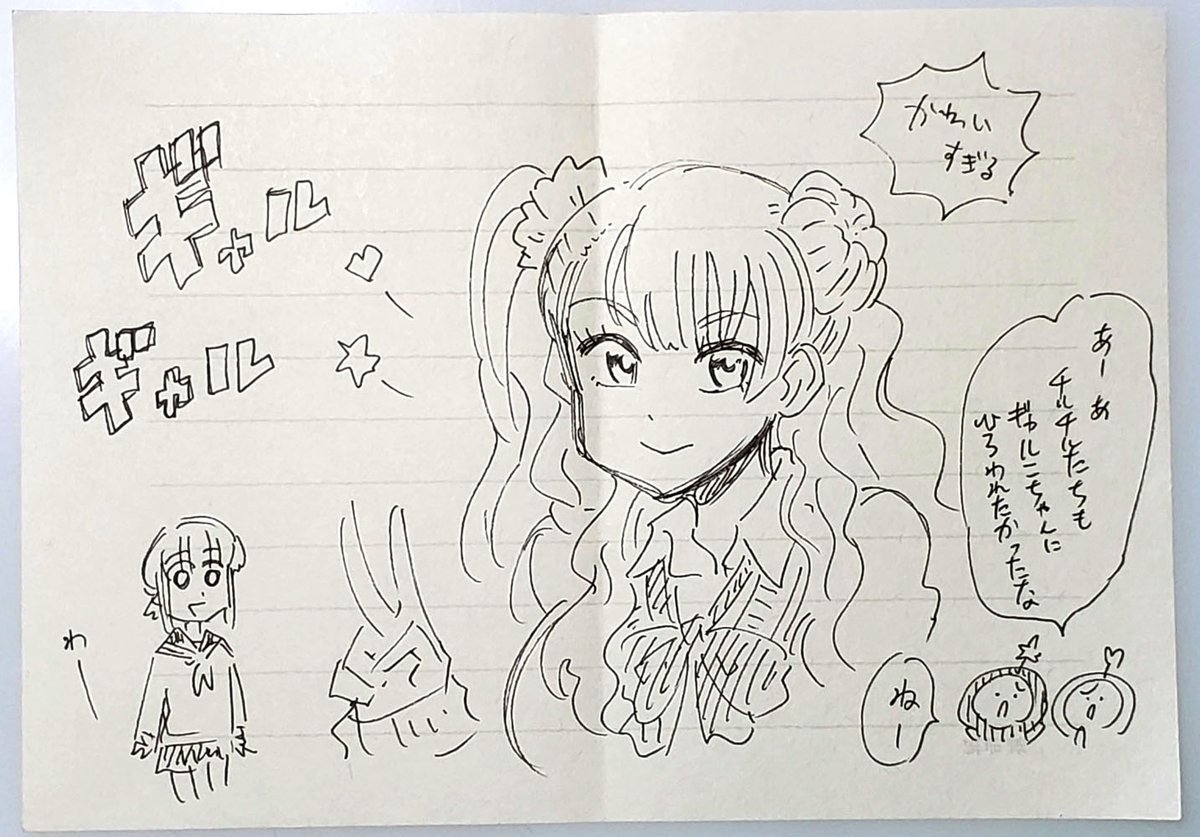 ギャル
ギャル
かわい
すぎる
あーあ
チルチルたちも
ギャルニちゃんに
ひろわれたかったな
ねー
わー